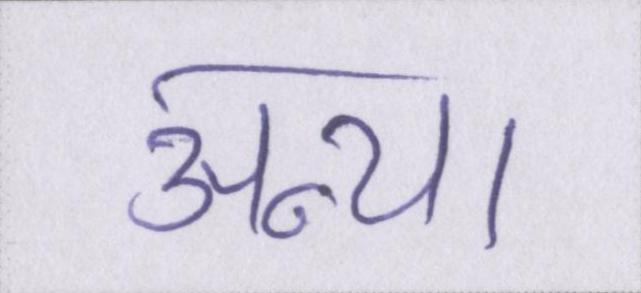 अन्या